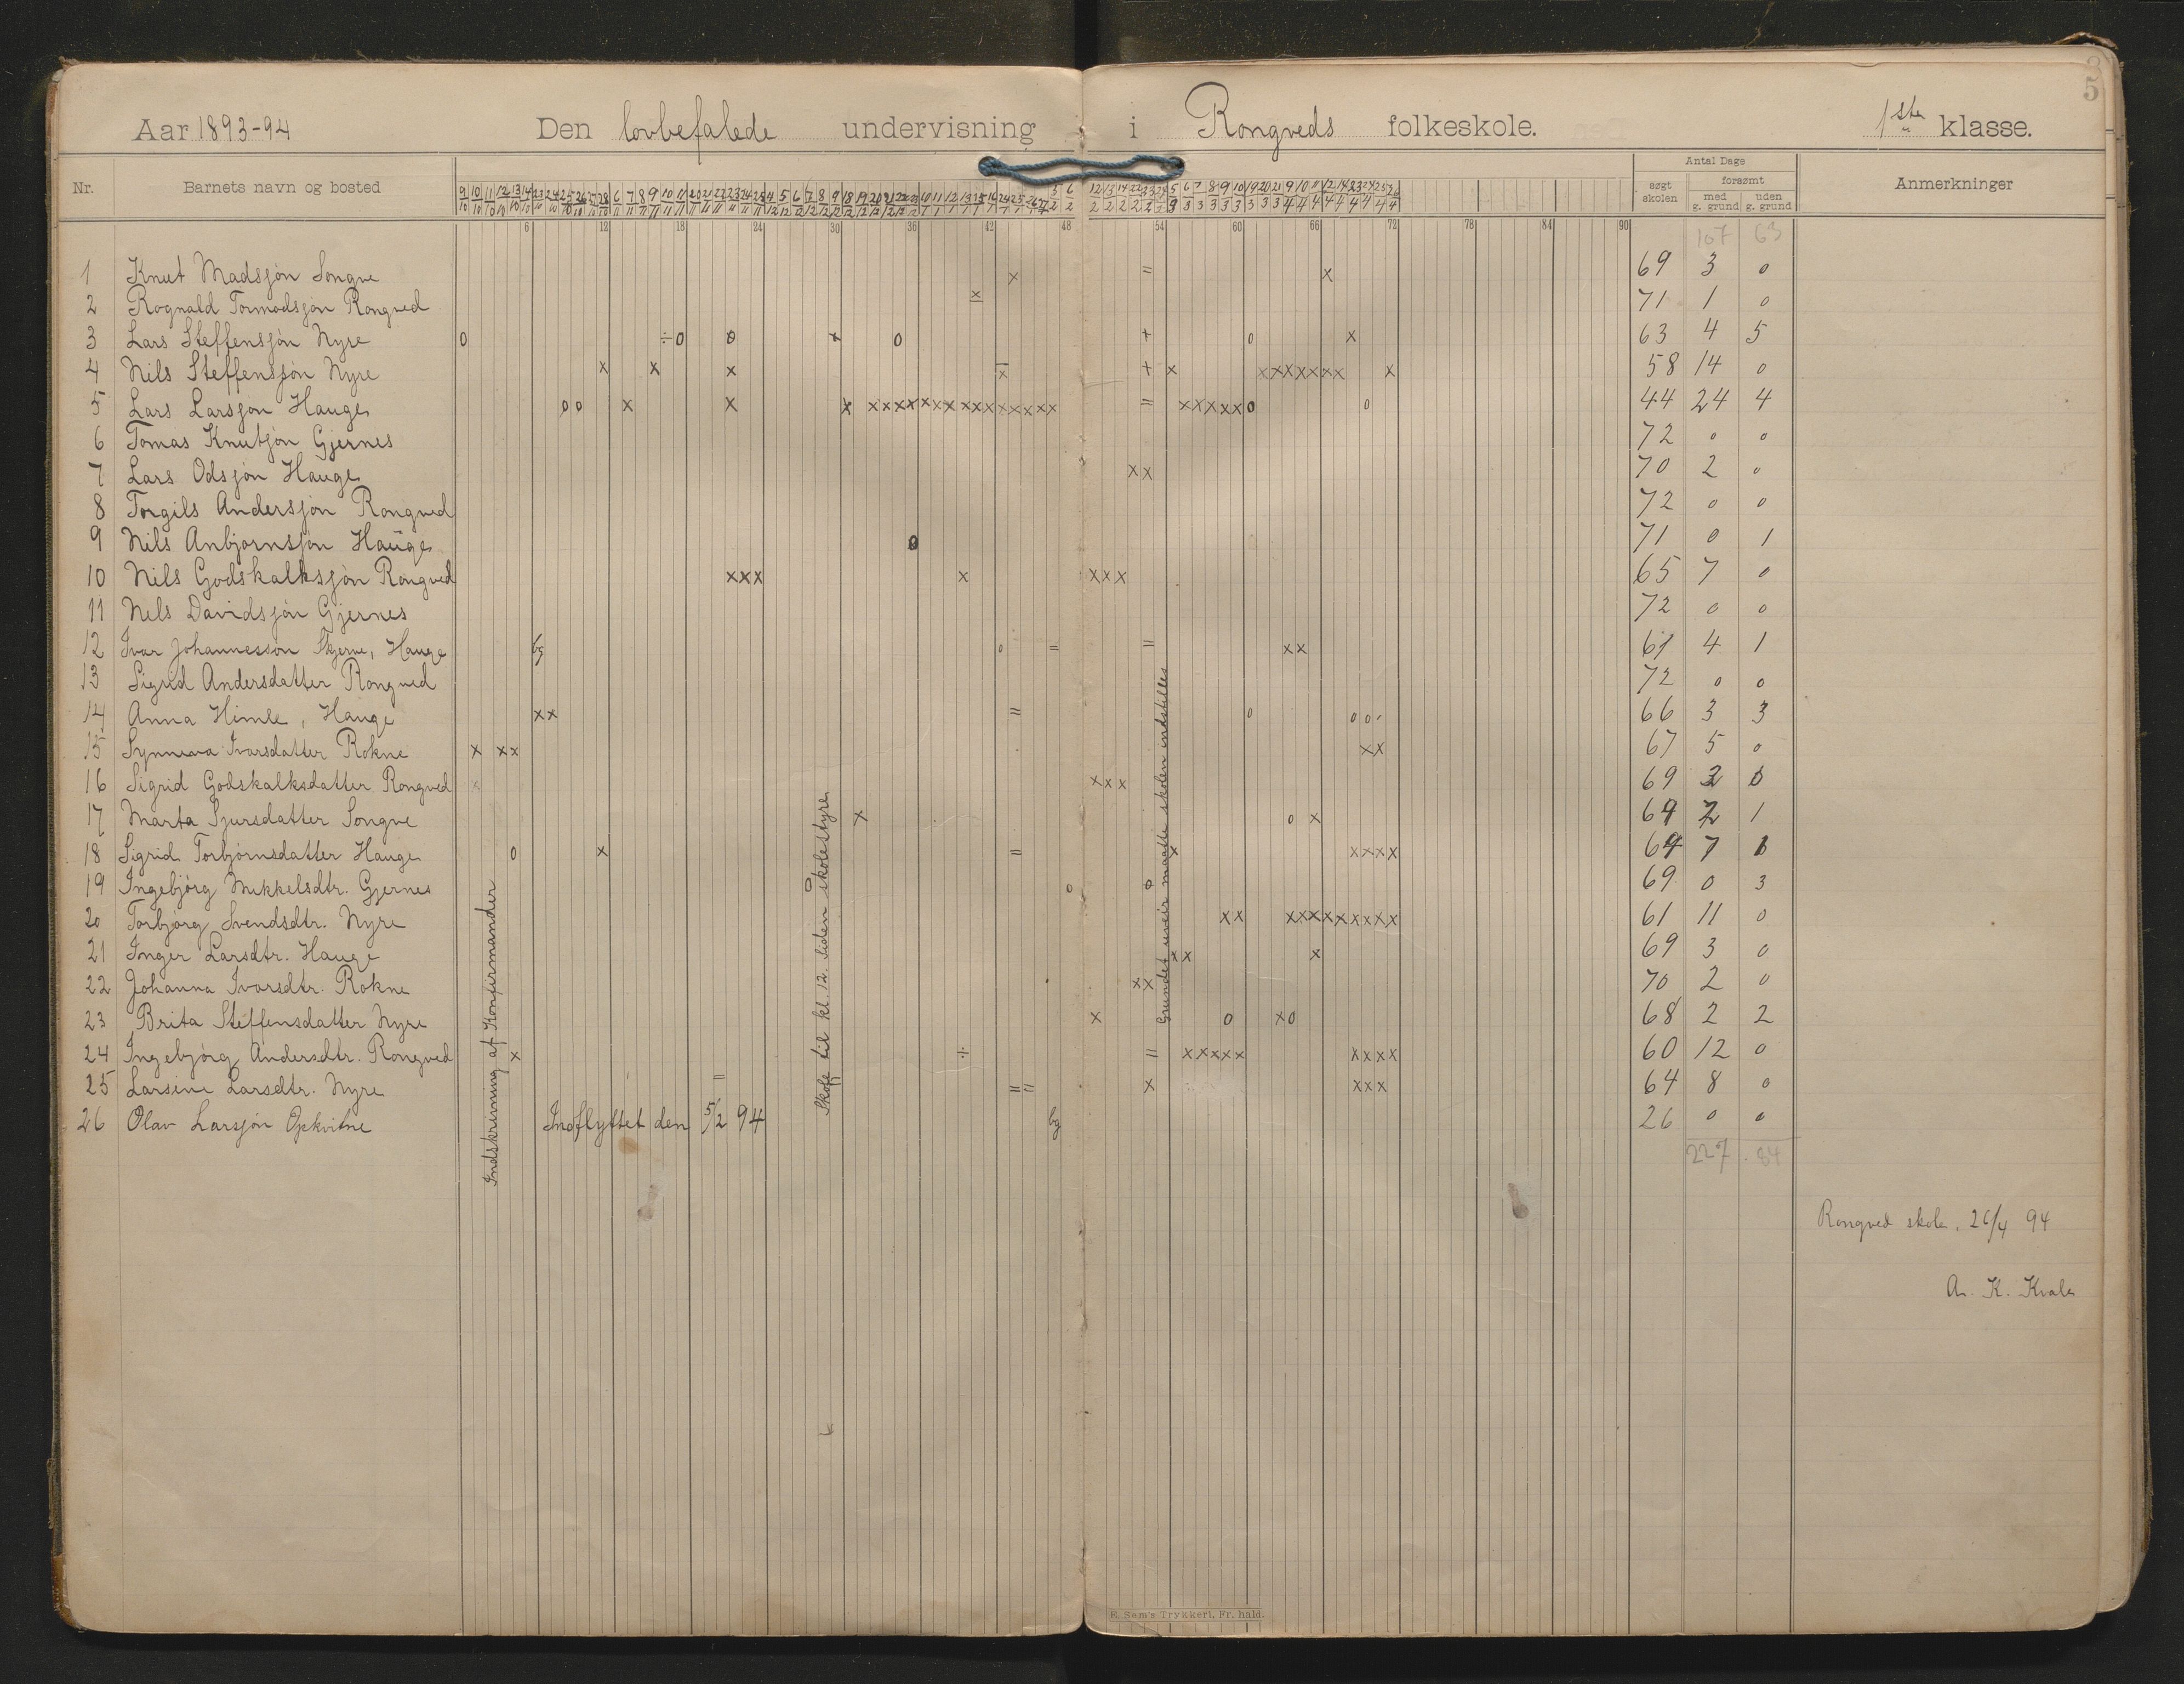 3
5
Aar 1893-94 Den lovbefalede undervisning i Rongveds folkeskole. 1ste klasse.
Nr. Barnets navn og bosted Antal Dage søgt skolen forsømt med g. grund uden g. grund Anmerkninger
6 12 18 24 30 36 42 48 54 60 66 72 78 84 90
107 63
1 Knut Madsjøn Songve = 69 3 0
2 Rognald Tormodsjøn Rongved 71 1 0
3 Lars Steffensjøn Nyre 63 4 5
4 Nils Steffensjøn Nyre 58 14 0
5 Lars Larsjøn Hauge 44 24 4
6 Tomas Knutjøn Gjernes 72 0 0
7 Lars Odsjøn Hauge xx 70 2 0
8 Torgils Andersjøn Rongved 72 0 0
9 Nils Anbjørnsjøn Hauge 0 71 0 1
10 Nils Godskalksjøn Rongved xxx x xxx 65 7 0
11 Nels Davidsjøn Gjernes 72 0 0
12 Ivar Johannessøn Skjerve, Hauge bg 0 = = xx 61 4 1
13 Sigrid Andersdatter Rongved 72 0 0
14 Anna Himle, Hauge xx = 0 66 3 3
15 Synneva Ivarsdatter Rokne x xx xx 67 5 0
16 Sigrid Godskalksdatter Rongved xxx 69 3
17 Marta Sjursdatter Songve x 0 x 69 2 1
18 Sigrid Torbjørnsdatter Hauge 0 x = x xxxx 64 7 1
19 Ingebjørg Mikkelsdtr. Gjernes 0 0 69 0 3
20 Torbjørg Svendsdtr. Nyre xx xxxxxxxxx 61 11 0
21 Inger Larsdtr. Hauge xx x 69 3 0
22 Johanna Ivarsdtr. Rokne xx 70 2 0
23 Brita Steffensdatter Nyre x 0 x0 68 2 2
24 Ingebjørg Andersdtr. Rongved x + = xxxxx xxxx 60 12 0
25 Larsine Larsdtr. Nyre = == x xxx 64 8 0
26 Olav Larsjøn Opkvitne Indflyttet den 5/2 94 bg 26 0 0
227 84
Indskrivning af Konfirmander
Skole til kl. 12. Siden skolestyre
Grundet uveir maatte skolen indstilles
Rongved skole, 26/4 94
A. K. Kvale
E. Sem's Trykkeri, Fr. hald.